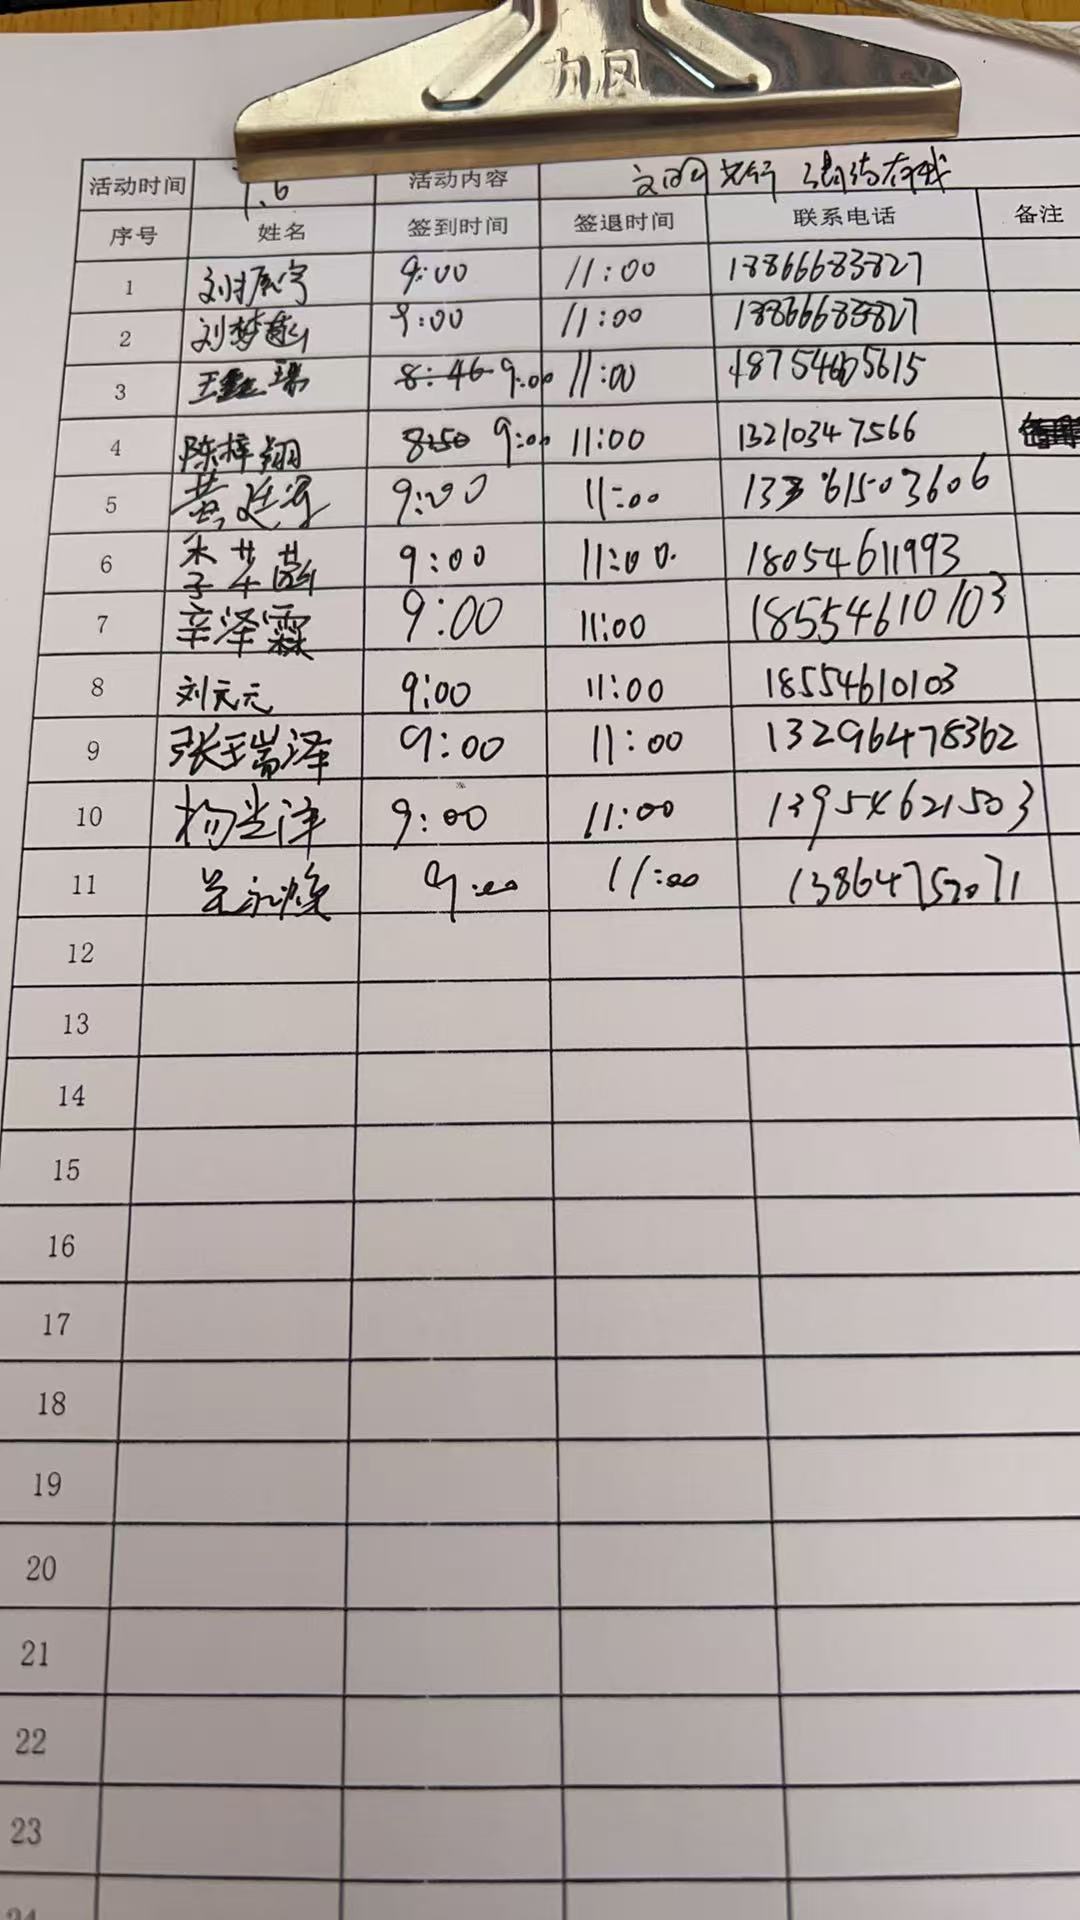 力风
活动时间 7.6 活动内容 文明出行 清洁有我
序号 姓名 签到时间 签退时间 联系电话 备注
1 刘振宇 9:00 11:00 13866683827
2 刘梦 9:00 11:00 13866683827
3 王 瑞 8:46 9:00 11:00 18754605615
4 陈梓翔 8:50 9:00 11:00 13210347566
5 黄廷 9:00 11:00
6 李 9:00 11:00 18054611993
7 辛泽霖 9:00 11:00 18554610103
8 刘元元 9:00 11:00 18554610103
9 张瑞泽 9:00 11:00 13296478362
10 杨 9:00 11:00 13954621503
11 永焕 9:00 11:00 13864752071
12
13
14
15
16
17
18
19
20
21
22
23
24